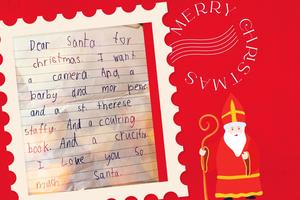 Dear Santa for
christmas. I want
a camera And a
barby and mor pens
and a st therese
staffy. And a coulring
book. And a crucifix
I Love you so
much Santa.
MERRY CHRISTMAS